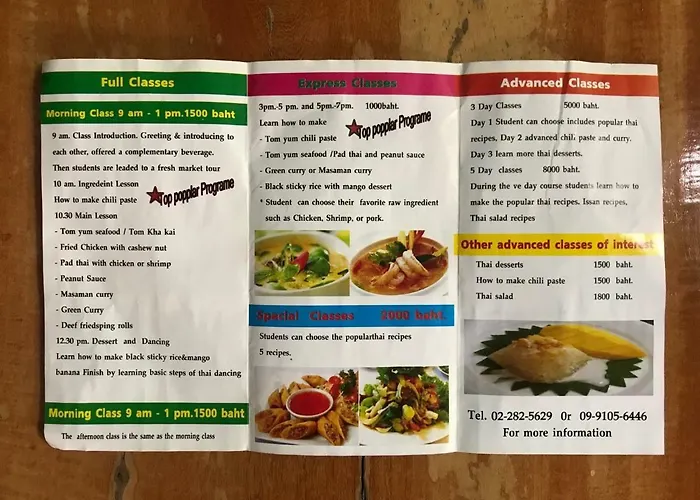 Full Classes
Morning Class 9 am - 1 pm.1500 baht
9 am. Class Introduction. Greeting & introducing to
each other, offered a complementary beverage.
Then students are leaded to a fresh market tour
10 am. Ingredeint Lesson
How to make chili paste
Top popplar Programe
10.30 Main Lesson
- Tom yum seafood / Tom Kha kai
- Fried Chicken with cashew nut
- Pad thai with chicken or shrimp
- Peanut Sauce
- Masaman curry
- Green Curry
- Deef friedsping rolls
12.30 pm. Dessert and Dancing
Learn how to make black sticky rice&mango
banana Finish by learning basic steps of thai dancing
Morning Class 9 am - 1 pm.1500 baht
The afternoon class is the same as the morning class
Express Classes
3pm.-5 pm. and 5pm.-7pm. 1000baht.
Learn how to make
Top popplar Programe
- Tom yum chili paste
- Tom yum seafood /Pad thai and peanut sauce
- Green curry or Masaman curry
- Black sticky rice with mango dessert
* Student can choose their favorite raw ingredient
such as Chicken, Shrimp, or pork.
Spacial Classes 2000 baht.
Students can choose the popularthai recipes
5 recipes.
Advanced Classes
3 Day Classes 5000 baht.
Day 1 Student can choose includes popular thai
recipes, Day 2 advanced chili paste and curry.
Day 3 learn more thai desserts.
5 Day classes 8000 baht.
During the ve day course students learn how to
make the popular thai recipes. Issan recipes,
Thai salad recipes
Other advanced classes of interest
Thai desserts 1500 baht.
How to make chili paste 1500 baht.
Thai salad 1800 baht.
Tel. 02-282-5629 Or 09-9105-6446
For more information